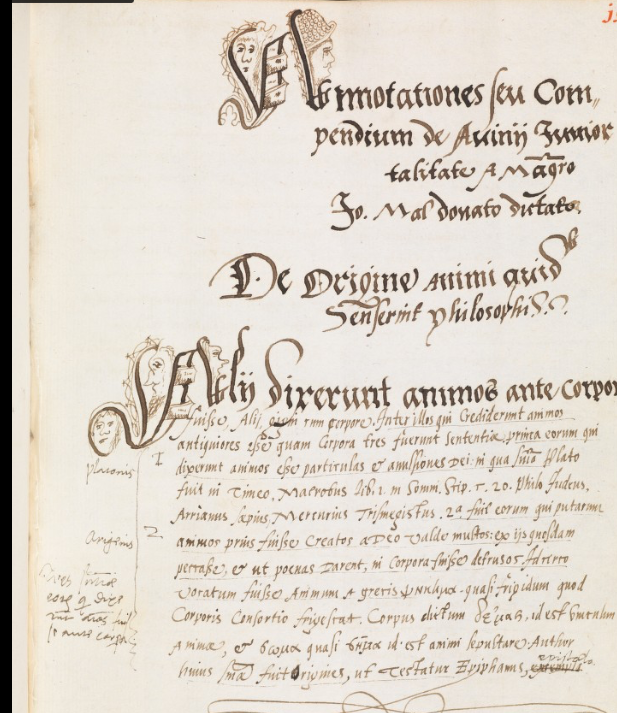 Annotationes seu Com„
pendium de Animi Immor
talitate A Magro
Jo. Maldonato dictatū
De Origine animi quid
Senserint philosophi
Alij dixerunt animos ante corpor
fuisse, Alij, cum corpore. Inter illos qui Crediderunt animos
antiquiores esse quam Corpora tres fuerunt Sententiæ, prima eorum qui
dixerunt animos esse particulas et avulsiones Dei: in qua Plato
fuit in Timeo, Macrobus lib. 1. in Somn. Scip. 20. Philo Judeus,
Arrianus sæpius, Mercurius Trismegistus, 2ª fuit eorum qui putarunt
animos prius fuisse Creatos a Deo valde multos: ex ijs quosdam
peccasse, et ut poenas Darent, in Corpora fuisse detrusos
vocatum fuisse Animum A grecis quasi frigidum quod
Corporis Consortio frigescat. Corpus dictum δέμας, id est vinculum
Animæ, et σωμα quasi σημα id est animi sepultare. Author
huius fuit Origines, ut Testatur Epiphanius,
1
2
platonis
Origenis